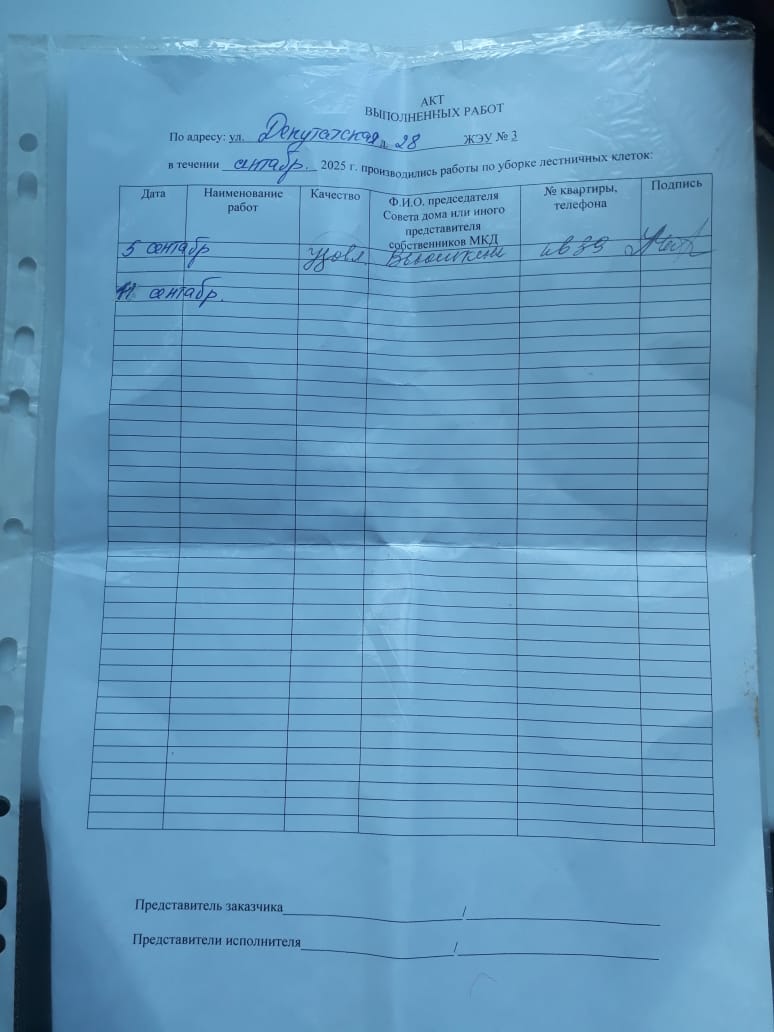 АКТ
ВЫПОЛНЕННЫХ РАБОТ
По адресу: ул. Депутатская д. 28 ЖЭУ № 3
в течении сентябр. 2025 г. производились работы по уборке лестничных клеток:
Дата Наименование работ Качество Ф.И.О. председателя Совета дома или иного представителя собственников МКД № квартиры, телефона Подпись
5 сентябр удовл кв 39
11 сентябр.
Представитель заказчика /
Представители исполнителя /